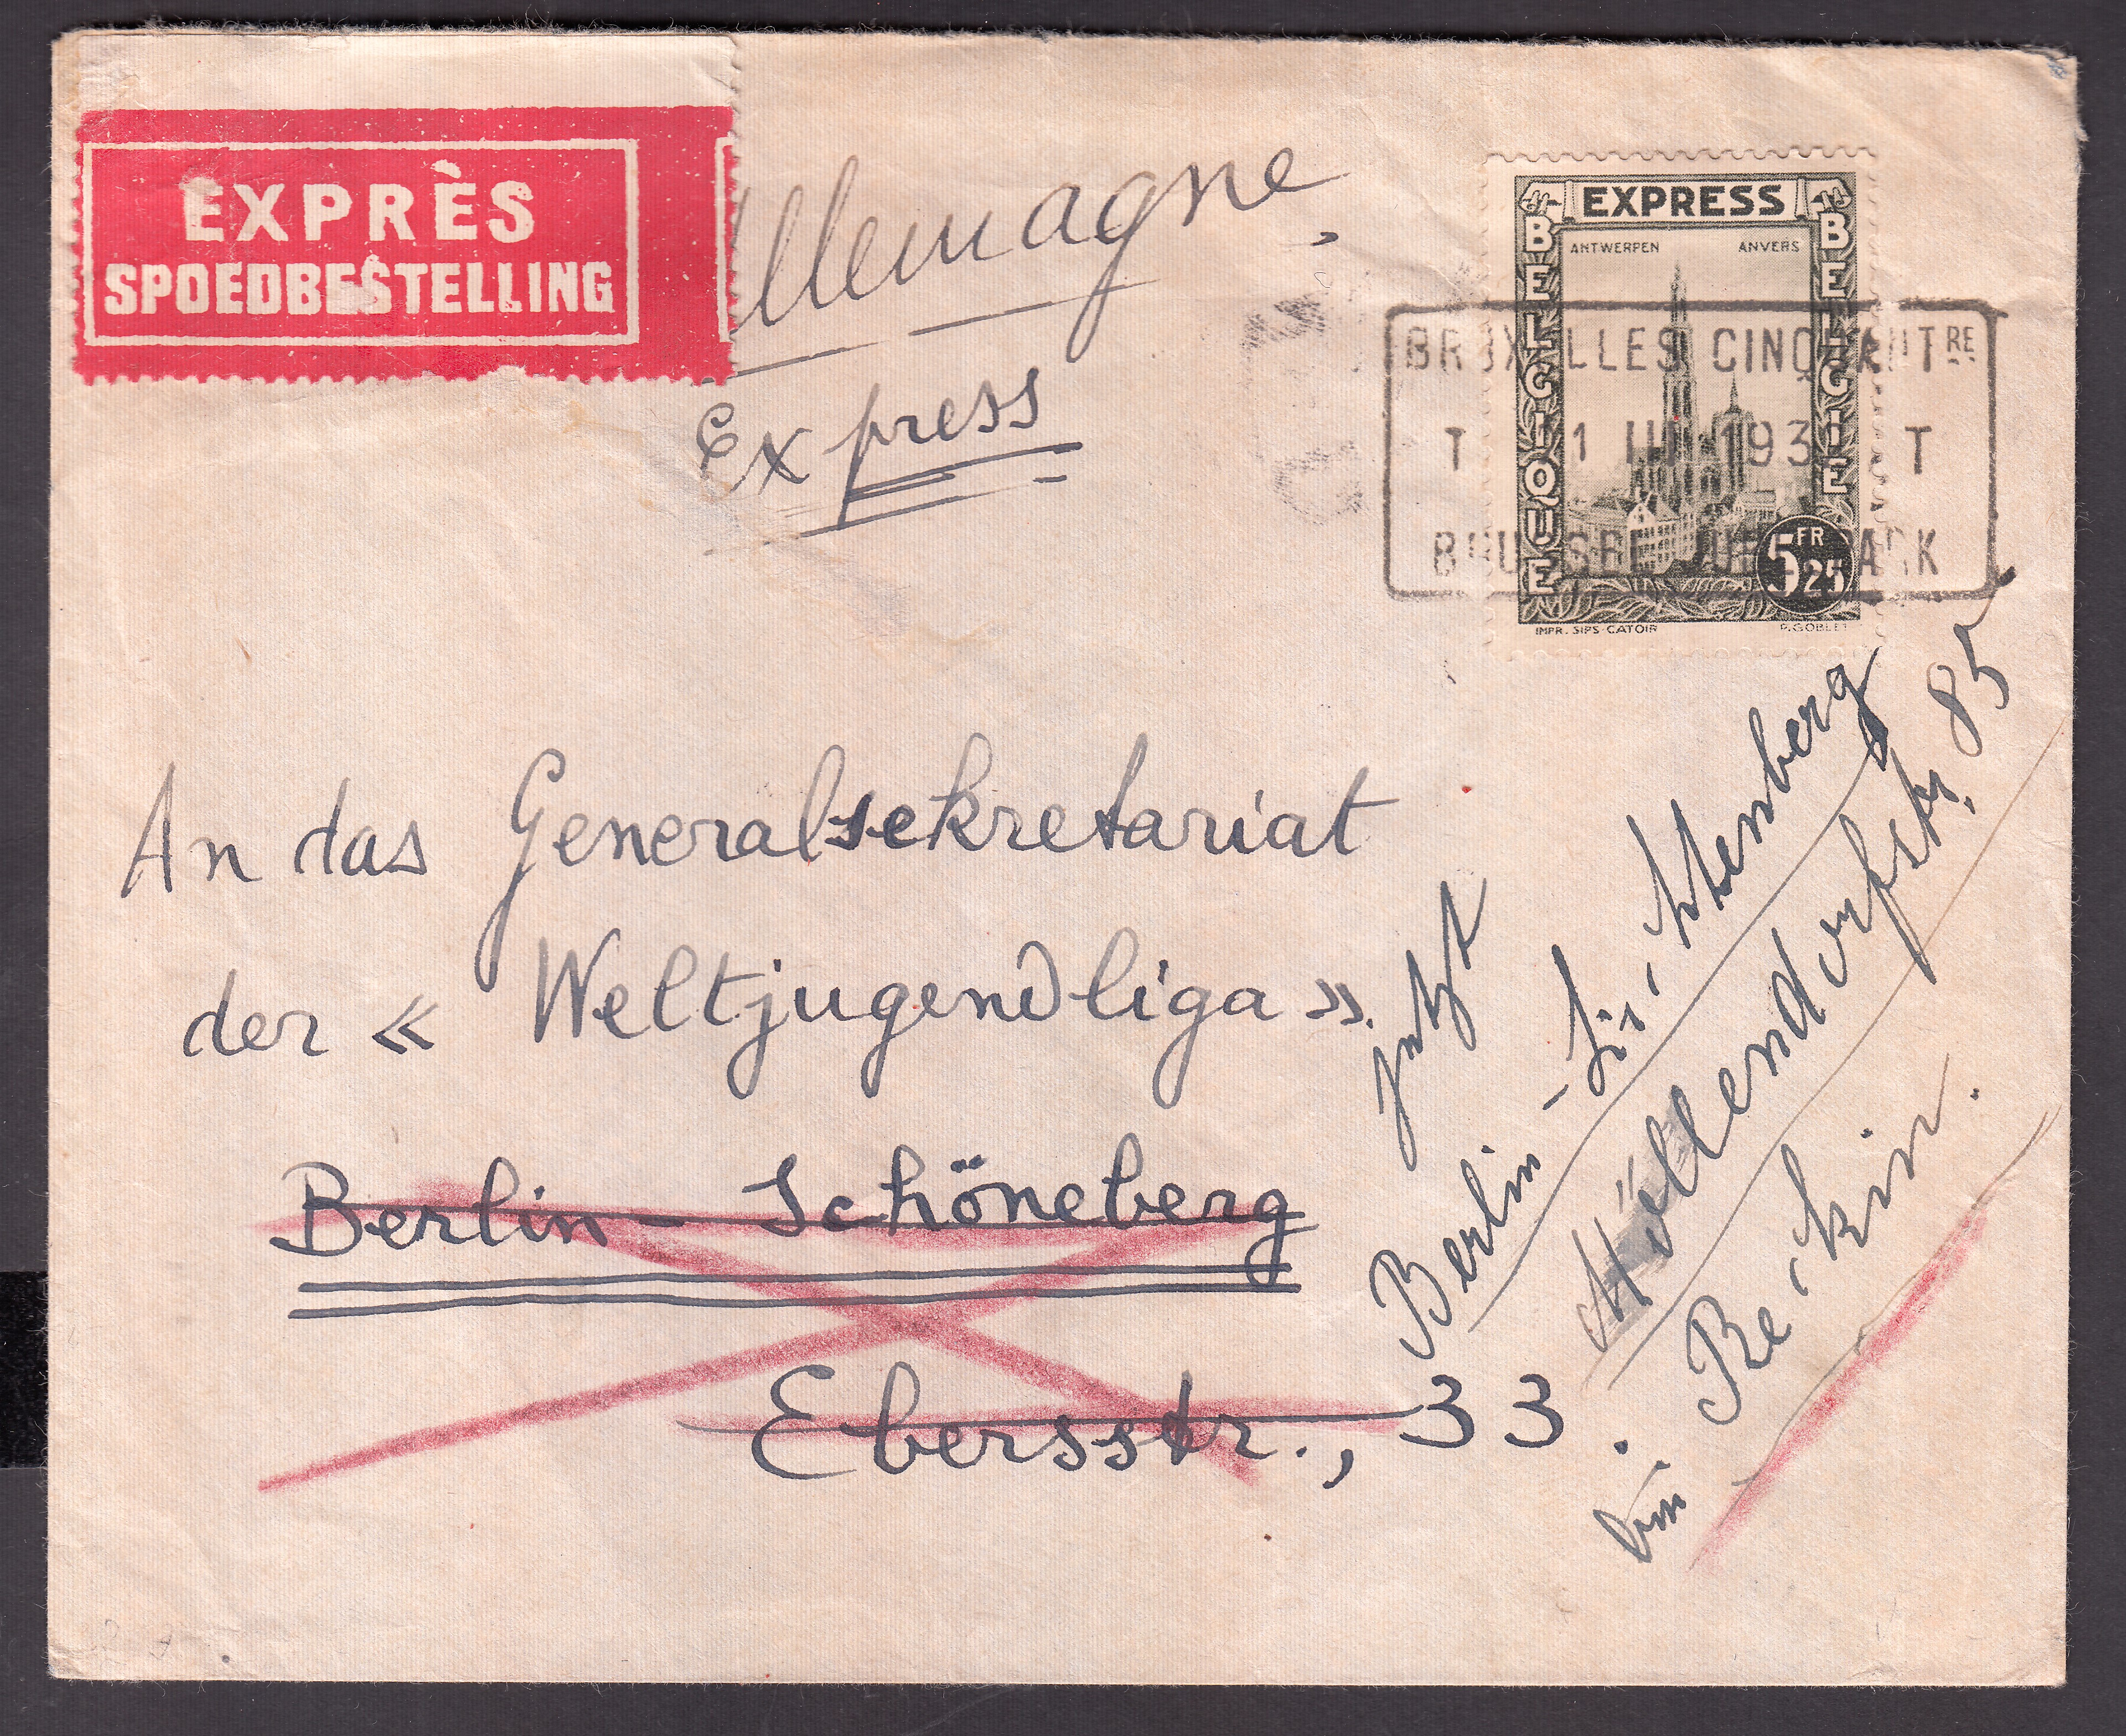 EXPRÈS
SPOEDBESTELLING
Allemagne,
Express
EXPRESS
ANTWERPEN ANVERS
BELGIQUE
BELGIE
5 FR 25
IMPR. SIPS-CATOIR
R.GOBLET
BRUXELLES CINQUANTRE
T 1 III 193 T
BRUSSEL JUBELPARK
An das Generalsekretariat
der « Weltjugendliga ».
Berlin - Schöneberg
Ebersstr., 33.
jetzt
Berlin - Lichtenberg
Möllendorfstr. 85